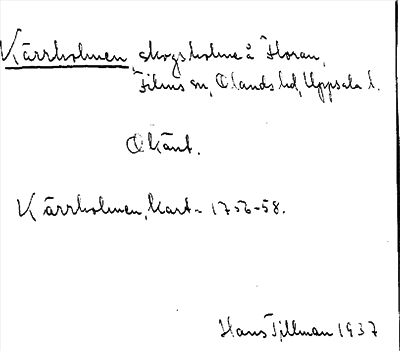 Kärrholmen, skogsholme å Floran,
Films sn, Olands hd, Uppsala l.
Okänt.
Kärrholmen, Kart. 1756-58.
Hans Tillman 1937